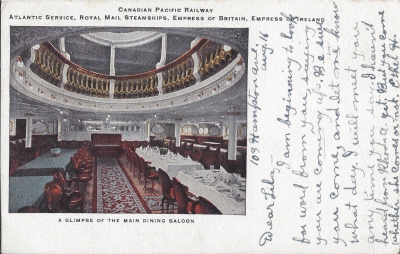 Canadian Pacific Railway
Atlantic Service, Royal Mail Steamships, Empress of Britain, Empress of Ireland
A GLIMPSE OF THE MAIN DINING SALOON
109 Hampton ave.
Aug 16
Dear Lily:-
I am beginning to look
for word from you saying
you are coming up. Be sure
you come, and let me know
what day. I will meet you
any time you say. I haven't
heard from Rhoda yet. But you come
whether she comes or not.